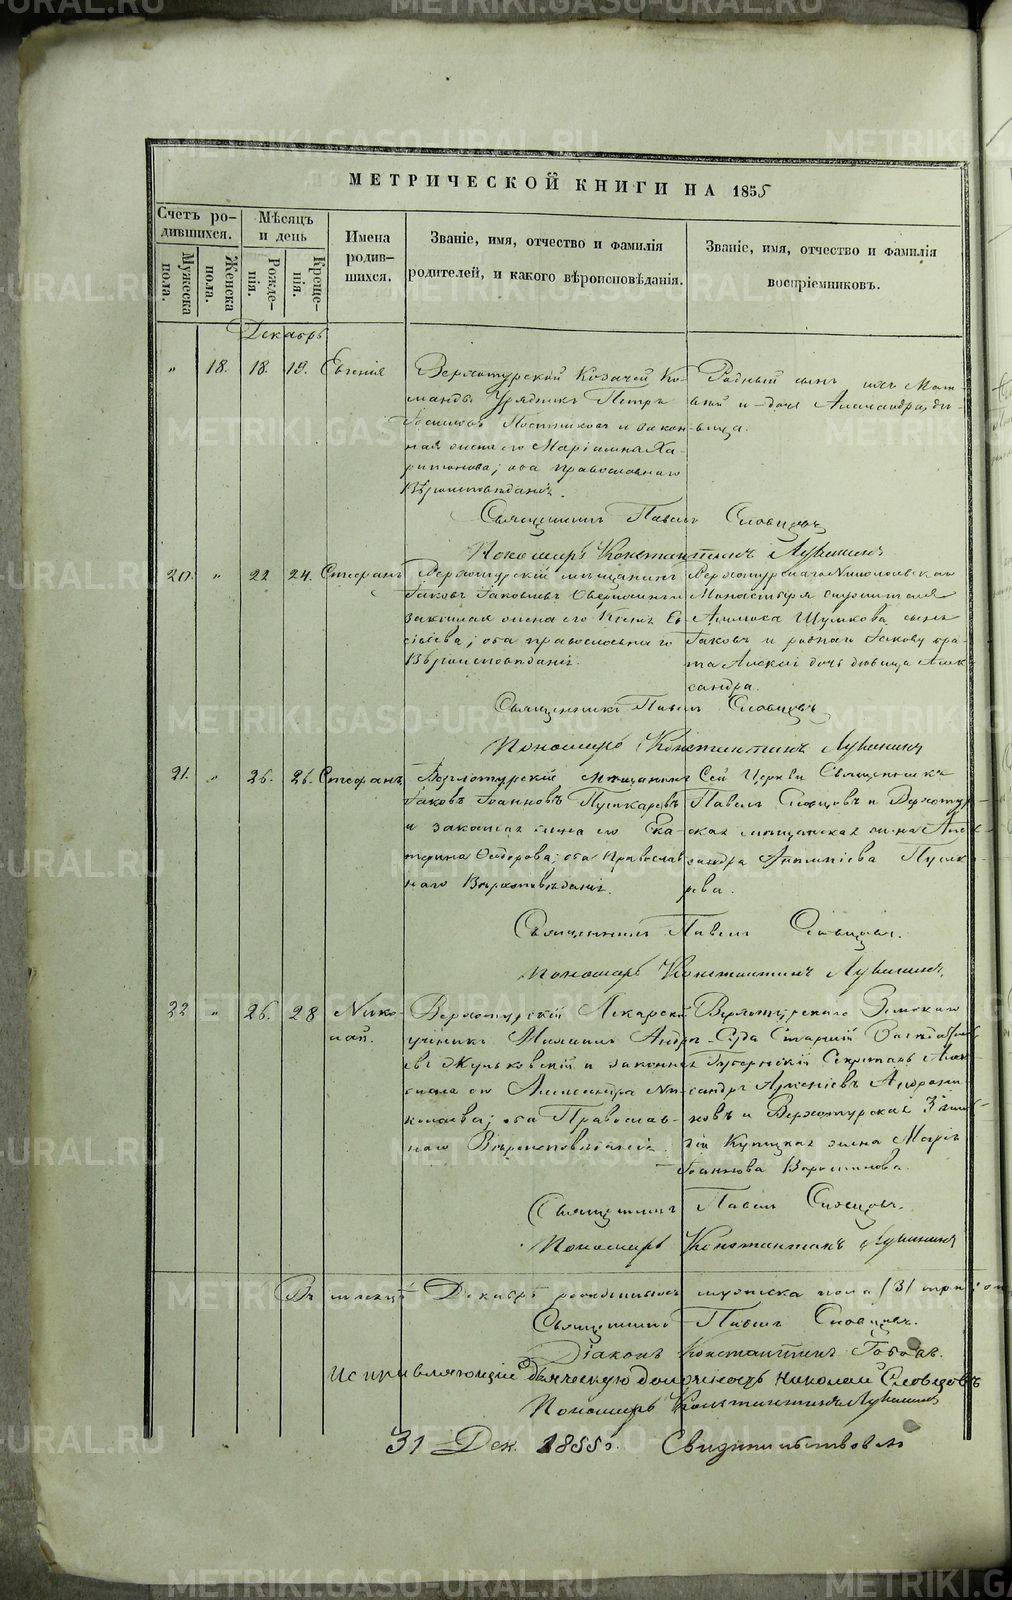 МЕТРИЧЕСКОЙ КНИГИ НА 1855
Счетъ ро-
дившихся.
Мужеска
пола.
Женска
пола.
Мѣсяцъ
и день
Рожде-
нія.
Креще-
нія.
Имена
родив-
шихся.
Званіе, имя, отчество и фамилія
родителей, и какого вѣроисповѣданія.
Званіе, имя, отчество и фамилія
воспріемниковъ.
Декабрь
" 18. 18. 19. Евгенія
Верхотурской Козачей Ко-
манды Урядникъ Петръ
Постниковъ и закон-
ная жена его Маріамна Ха-
ритонова; оба православнаго
Вѣроисповѣданія.
Родный сынъ ихъ Мат-
вѣй и дочь Александра дѣ-
вица.
Священникъ Павелъ Словцовъ
Пономарь Константинъ Лукинихъ
20. " 22 24. Стефанъ
Верхотурскій мѣщанинъ
Іаковъ Іаковлевъ
законная жена его Ев-
сіева; оба православнаго
Вѣроисповѣданія.
Верхотурскаго Николаевскаго
Монастыря служителя
Шумкова сынъ
Іаковъ и родная Іакову бра-
та дочь дѣвица Алек-
сандра.
Священникъ Павелъ Словцовъ
Пономарь Константинъ Лукинихъ
21. " 26. 26. Стефанъ
Верхотурскій Мѣщанинъ
Іаковъ Іоанновъ Пушкаревъ
и законная жена его Ека-
терина Ѳеодорова; оба Православ-
наго Вѣроисповѣданія.
Сей Церкви Священникъ
Павелъ Словцовъ и Верхотур-
ская мѣщанская жена Алек-
сандра Пушка-
рева.
Священникъ Павелъ Словцовъ.
Пономарь Константинъ Лукинихъ.
22 " 26. 28 Нико-
лай.
Верхотурскій Лекарскій
ученикъ Михаилъ Андре-
евъ Жуковскій и законная
жена его Александра Ни-
колаева; оба Православ-
наго Вѣроисповѣданія.
Верхотурскаго Земскаго
Суда Старшій Засѣдатель
Губернскій Секретарь Алек-
сандръ Арсеніевъ Андрони-
ковъ и Верхотурская 3 гиль-
діи Купецкая жена Марія
Іоаннова
Священникъ Павелъ Словцовъ.
Пономарь Константинъ Лукинихъ
Въ мѣсяцѣ Декабрѣ родившихся мужеска пола (3) три;
Священникъ Павелъ Словцовъ.
Діаконъ Константинъ
Исправляющій дьяческую должность Николай Словцовъ
Пономарь Константинъ Лукинихъ
31 Дек. 1855 г. Свидѣтельствовалъ
METRIKI.GASO-URAL.RU